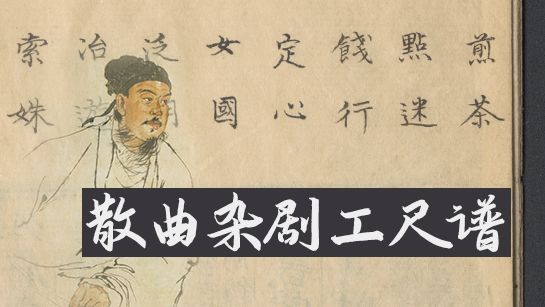 煎茶
點迷
餞行
定心
女國
泛湖
冶遊
索姝
散曲杂剧工尺谱